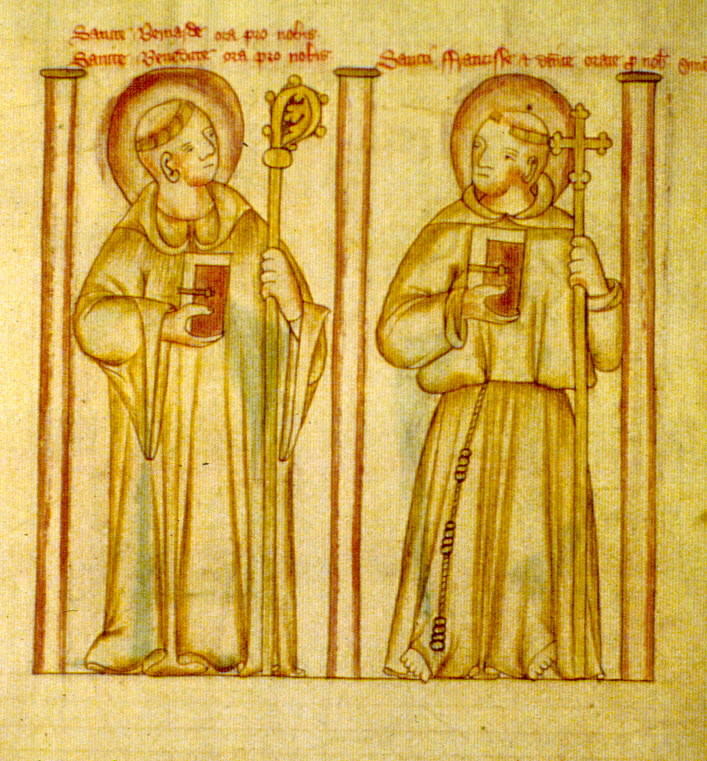 Sancte Bernarde ora pro nobis
Sancte Benedicte ora pro nobis
Sancti ffrancisse & dnice orate p nob